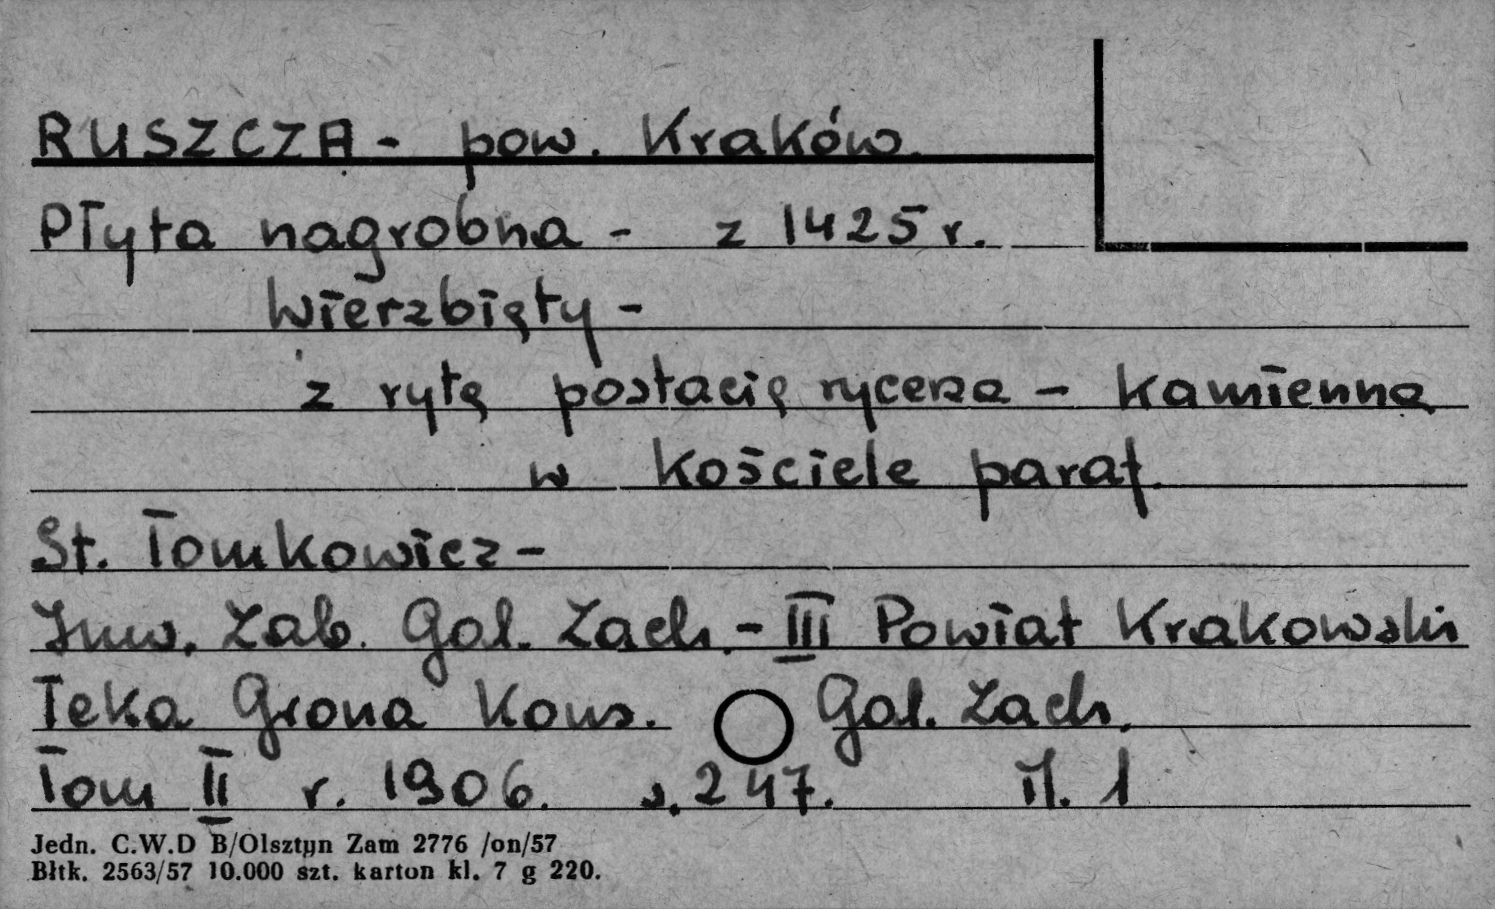 RUSZCZA - pow. Kraków.
Płyta nagrobna - z 1425 r.
Wierzbięty -
z rytą postacią rycerza - kamienna
w kościele paraf.
St. Tomkowicz -
Inw. Zab. Gal. Zach. - III Powiat Krakowski
Teka Grona Kons. Gal. Zach.
Tom II r. 1906. s. 247. il. 1
Jedn. C.W.D B/Olsztyn Zam 2776 /on/57
Błtk. 2563/57 10.000 szt. karton kl. 7 g 220.